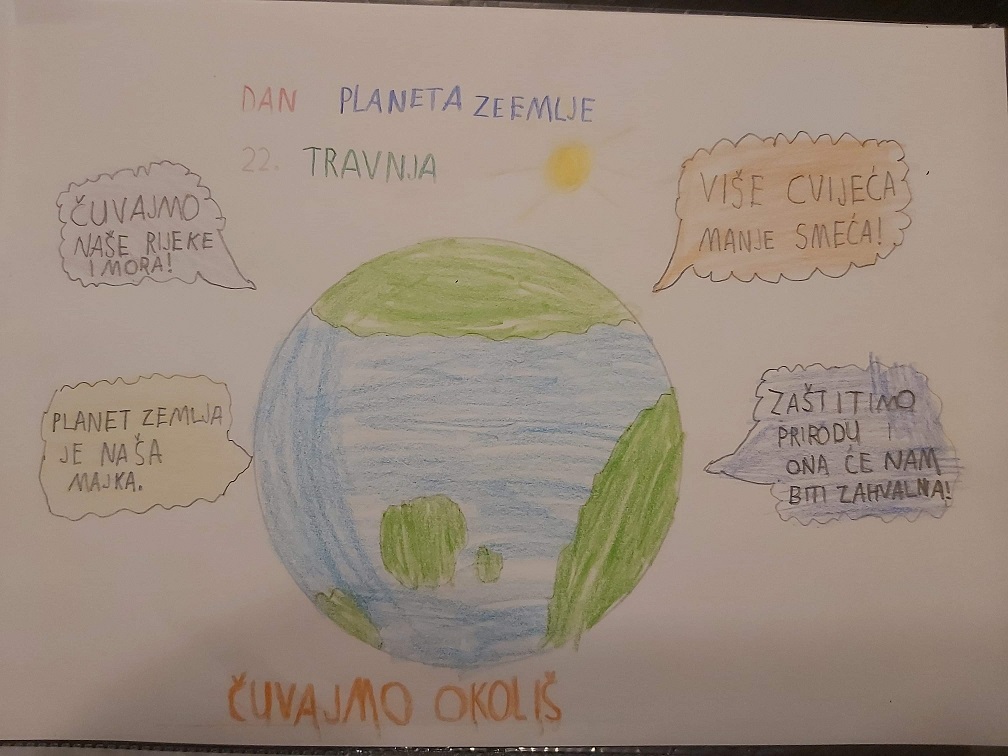 DAN PLANETA ZEEMLJE
22. TRAVNJA
ČUVAJMO
NAŠE RIJEKE
I MORA!
VIŠE CVIJEĆA
MANJE SMEĆA!
PLANET ZEMLJA
JE NAŠA
MAJKA.
ZAŠTITIMO
PRIRODU I
ONA ĆE NAM
BITI ZAHVALNA!
ČUVAJMO OKOLIŠ